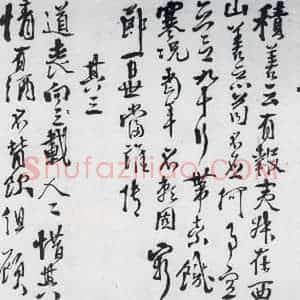 積善云有報夷叔在西
山善惡苟不應何事空
立言九十行帶索飢
寒況當年不賴固窮
節百世當誰傳
其三
道喪向千載人〻惜其
情有酒不肯飲但顧
Shufaziliao.com